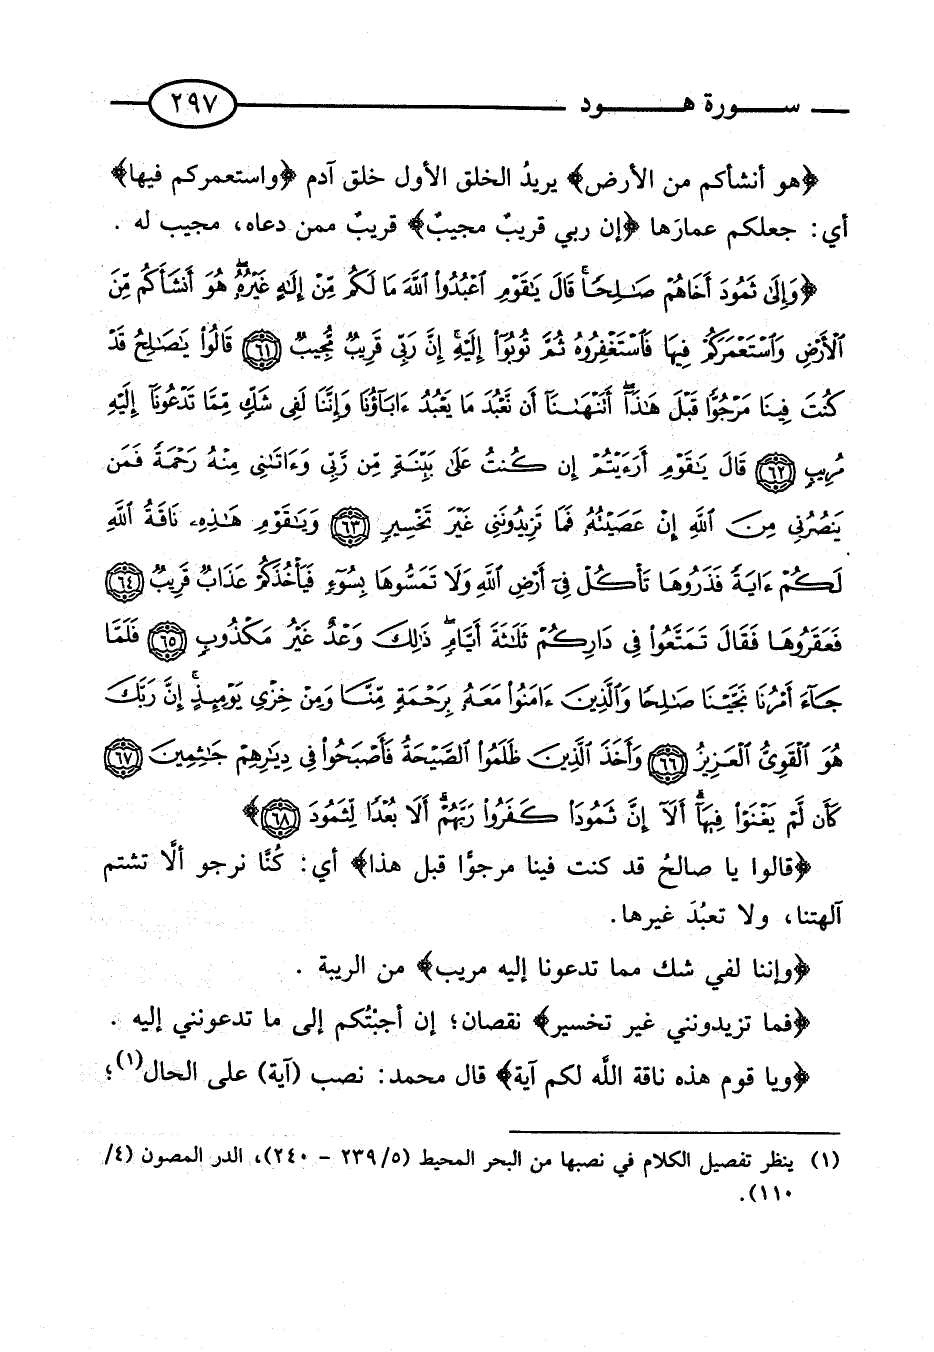 سورة هود ٢٩٧
﴿هو أنشأكم من الأرض﴾ يريدُ الخلق الأول خلق آدم ﴿واستعمركم فيها﴾
أي: جعلكم عمارَها ﴿إن ربي قريبٌ مجيبٌ﴾ قريبٌ ممن دعاه، مجيب له .
﴿وَإِلَىٰ ثَمُودَ أَخَاهُمْ صَٰلِحًا ۚ قَالَ يَٰقَوْمِ ٱعْبُدُوا۟ ٱللَّهَ مَا لَكُم مِّنْ إِلَٰهٍ غَيْرُهُۥ ۖ هُوَ أَنشَأَكُم مِّنَ
ٱلْأَرْضِ وَٱسْتَعْمَرَكُمْ فِيهَا فَٱسْتَغْفِرُوهُ ثُمَّ تُوبُوٓا۟ إِلَيْهِ ۚ إِنَّ رَبِّى قَرِيبٌ مُّجِيبٌ ٦١ قَالُوا۟ يَٰصَٰلِحُ قَدْ
كُنتَ فِينَا مَرْجُوًّا قَبْلَ هَٰذَآ ۖ أَتَنْهَىٰنَآ أَن نَّعْبُدَ مَا يَعْبُدُ ءَابَآؤُنَا وَإِنَّنَا لَفِى شَكٍّ مِّمَّا تَدْعُونَآ إِلَيْهِ
مُرِيبٍ ٦٢ قَالَ يَٰقَوْمِ أَرَءَيْتُمْ إِن كُنتُ عَلَىٰ بَيِّنَةٍ مِّن رَّبِّى وَءَاتَىٰنِى مِنْهُ رَحْمَةً فَمَن
يَنصُرُنِى مِنَ ٱللَّهِ إِنْ عَصَيْتُهُۥ ۖ فَمَا تَزِيدُونَنِى غَيْرَ تَخْسِيرٍ ٦٣ وَيَٰقَوْمِ هَٰذِهِۦ نَاقَةُ ٱللَّهِ
لَكُمْ ءَايَةً فَذَرُوهَا تَأْكُلْ فِىٓ أَرْضِ ٱللَّهِ وَلَا تَمَسُّوهَا بِسُوٓءٍ فَيَأْخُذَكُمْ عَذَابٌ قَرِيبٌ ٦٤
فَعَقَرُوهَا فَقَالَ تَمَتَّعُوا۟ فِى دَارِكُمْ ثَلَٰثَةَ أَيَّامٍ ۖ ذَٰلِكَ وَعْدٌ غَيْرُ مَكْذُوبٍ ٦٥ فَلَمَّا
جَآءَ أَمْرُنَا نَجَّيْنَا صَٰلِحًا وَٱلَّذِينَ ءَامَنُوا۟ مَعَهُۥ بِرَحْمَةٍ مِّنَّا وَمِنْ خِزْىِ يَوْمِئِذٍ ۗ إِنَّ رَبَّكَ
هُوَ ٱلْقَوِىُّ ٱلْعَزِيزُ ٦٦ وَأَخَذَ ٱلَّذِينَ ظَلَمُوا۟ ٱلصَّيْحَةُ فَأَصْبَحُوا۟ فِى دِيَٰرِهِمْ جَٰثِمِينَ ٦٧
كَأَن لَّمْ يَغْنَوْا۟ فِيهَآ ۗ أَلَآ إِنَّ ثَمُودَا۟ كَفَرُوا۟ رَبَّهُمْ ۗ أَلَا بُعْدًا لِّثَمُودَ ٦٨﴾
﴿قالوا يا صالحُ قد كنت فينا مرجوًّا قبل هذا﴾ أي: كُنَّا نرجو ألَّا تشتم
آلهتنا، ولا تعبُدَ غيرها.
﴿وإننا لفي شك مما تدعونا إليه مريب﴾ من الريبة .
﴿فما تزيدونني غير تخسير﴾ نقصان؛ إن أجبْتُكم إلى ما تدعونني إليه .
﴿ويا قوم هذه ناقة اللَّه لكم آية﴾ قال محمد: نصب (آية) على الحال(١)؛
(١) ينظر تفصيل الكلام في نصبها من البحر المحيط (٥/ ٢٣٩ - ٢٤٠)، الدر المصون (٤/
١١٠).